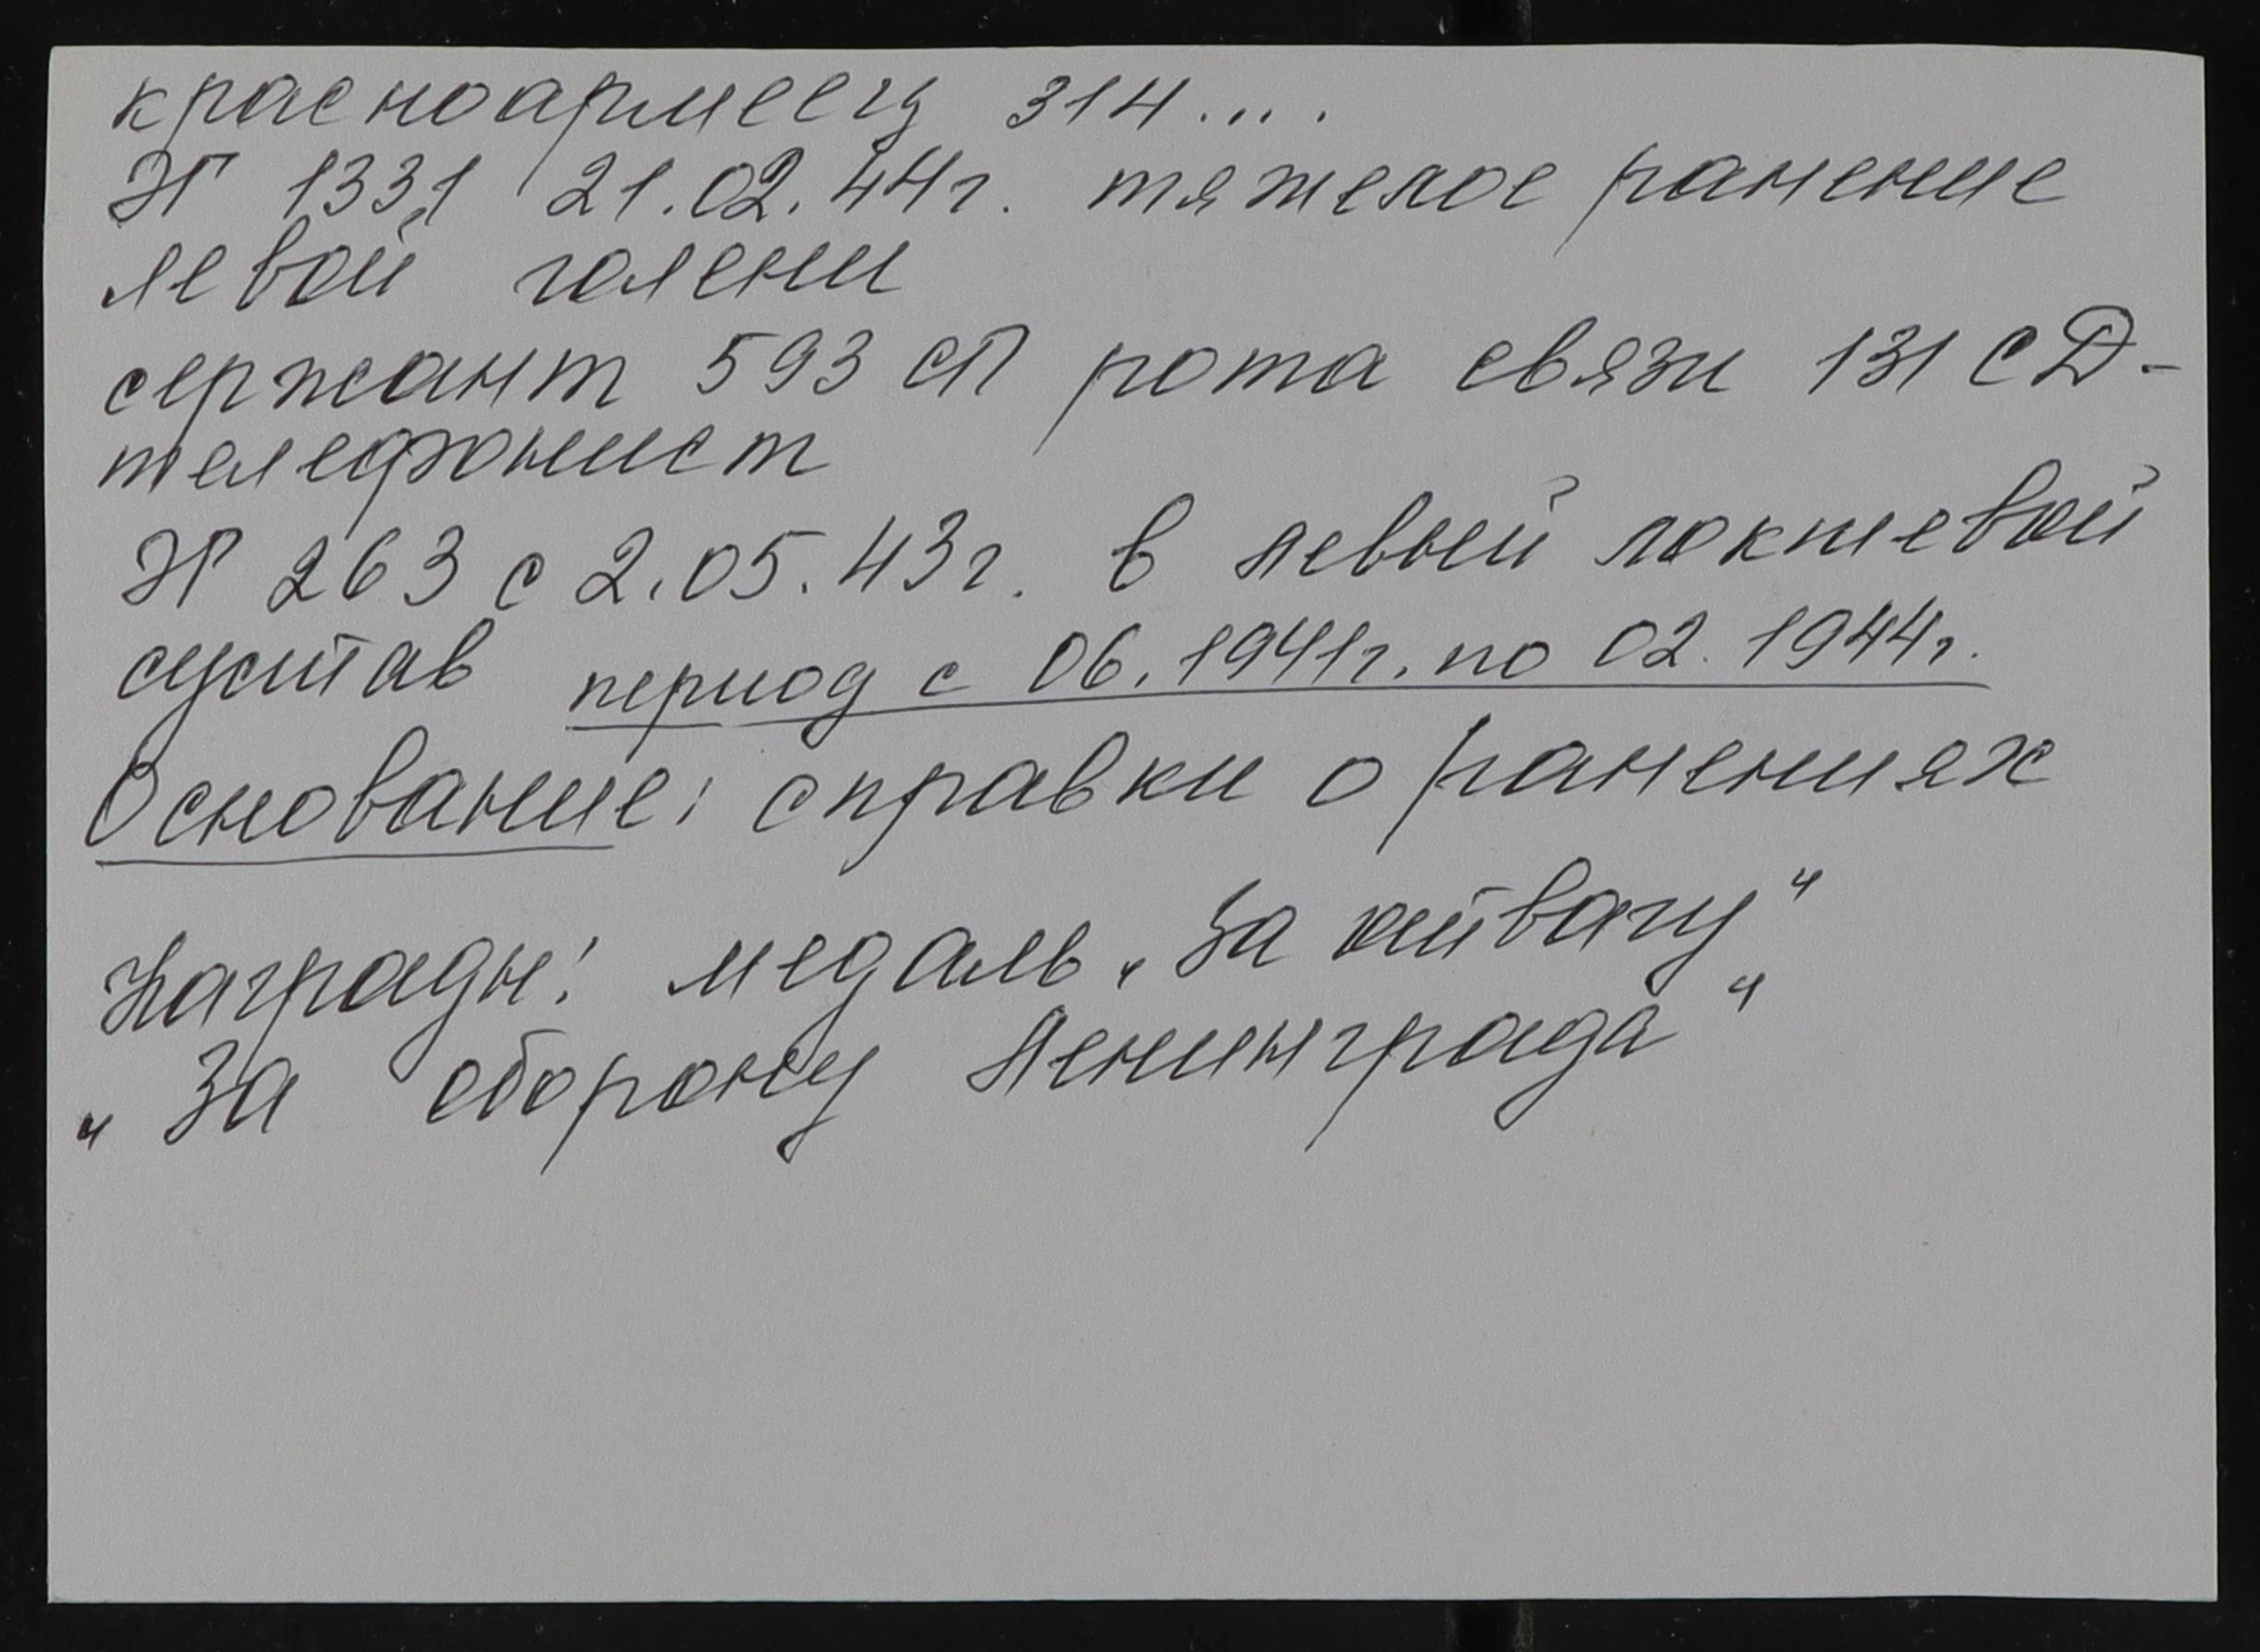 красноармеец 314....
ЭГ 1331 21.02.44г. тяжелое ранение
левой голени
сержант 593 СП рота связи 131 СД-
телефонист
ЭГ 263 с 2.05.43г. в левый локтевой
сустав период с 06.1941г. по 02.1944г.
Основание: справки о ранениях
Награды: медаль „За отвагу“
„За оборону Ленинграда“